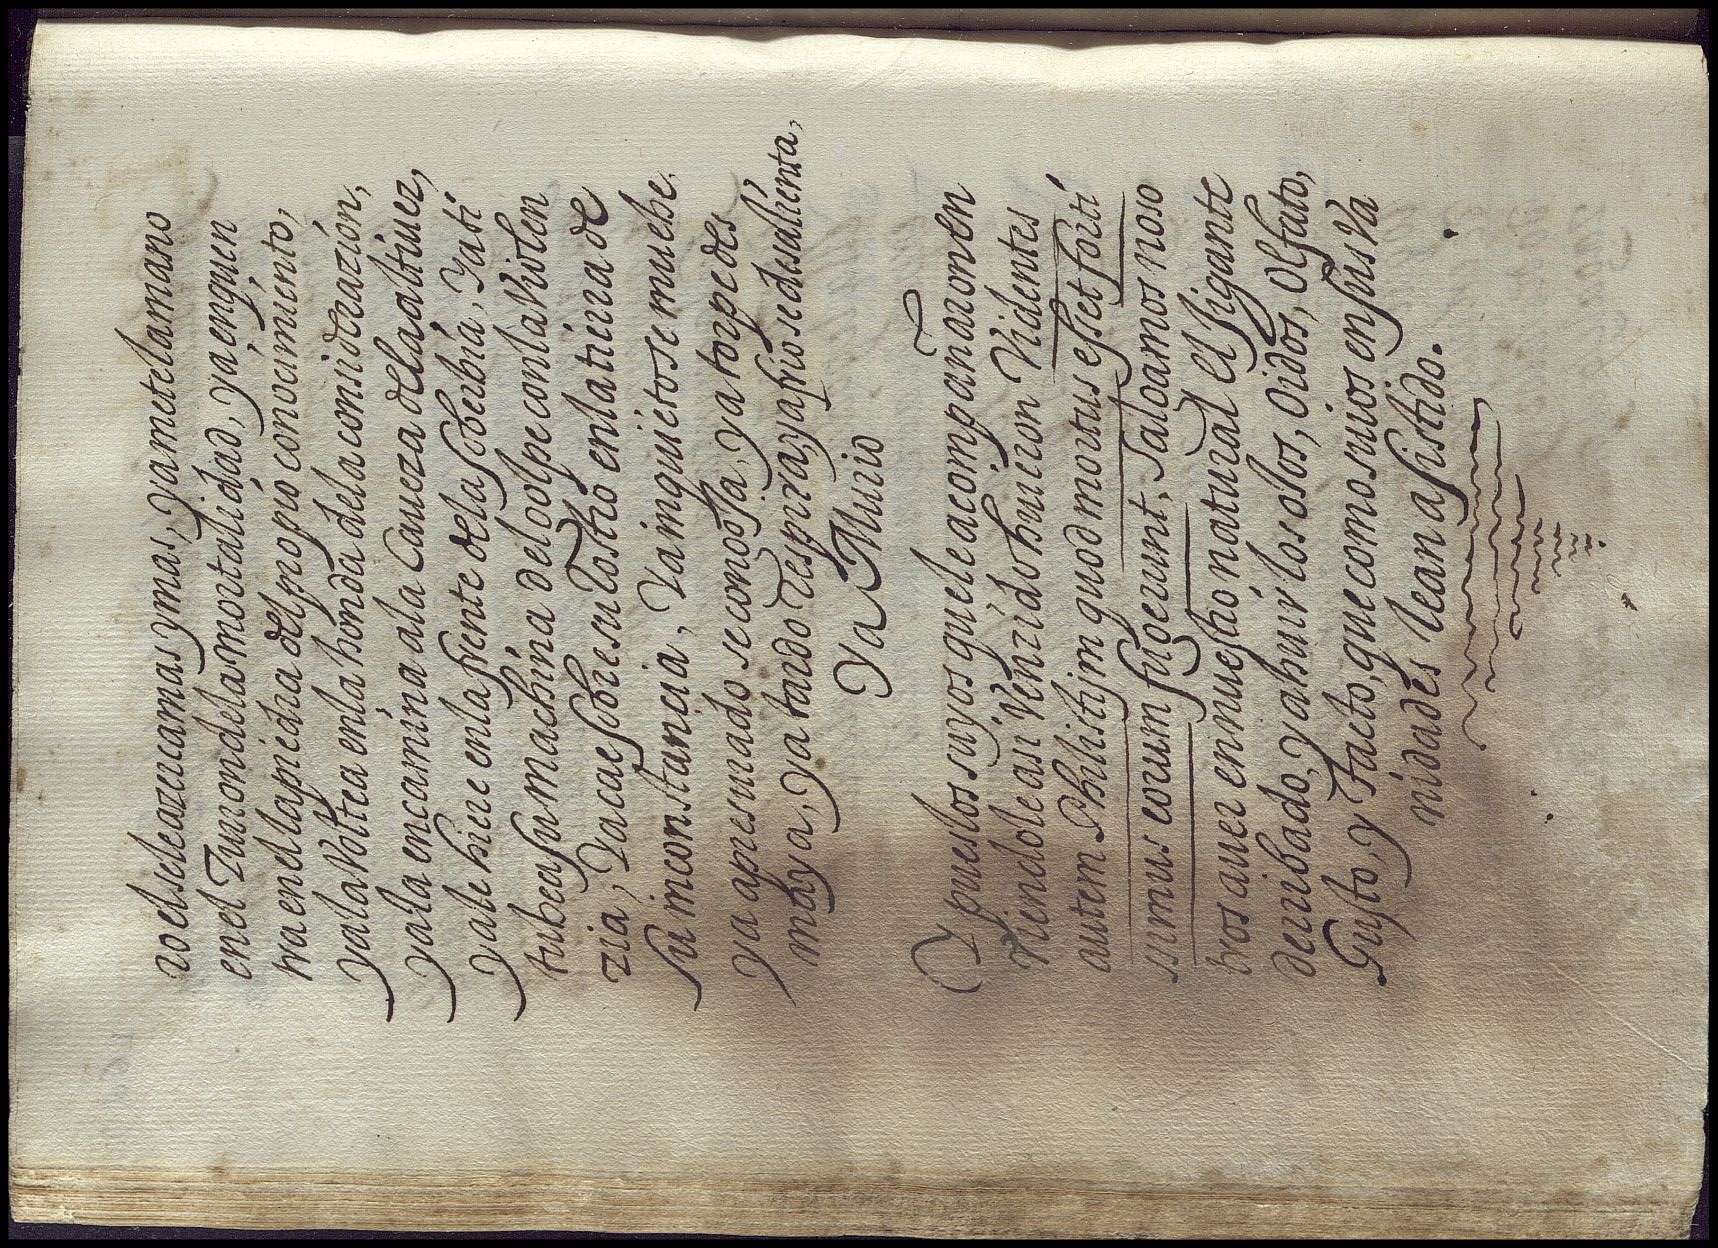 ro el se leazerca mas y mas, ya mete la mano
en el Zurron de la mortalidad, ya en quien
ma en el la piedra del propio conocimiento,
ya la Voltea en la honda de la considerazion,
ya la encamina a la Caveza de la altivez,
ya le hiere en la frente de la soberbia, ya ti
tubea su machina del golpe con la Violen
zia, Ya cae sobre su Rostro en la tierra de
su inconstancia, Ya inquieto se muebe.
ya apresurado se congosta, ya torpe des
maya, ya tardo respira ya frio se desalienta,
Ya Murio
Y pues los suyos que le acompañaron en
viendole asi Venzido huieron Videntes
autem Philistijm quod mortus esset forti
simus eorum fugerunt, Salgamos noso
tros a ver en nuestro natural el gigante
derribado, y a huir los ojos, oidos, olfato,
Gusto, y Tacto, que como suios en sus va
nidades le an asistido.